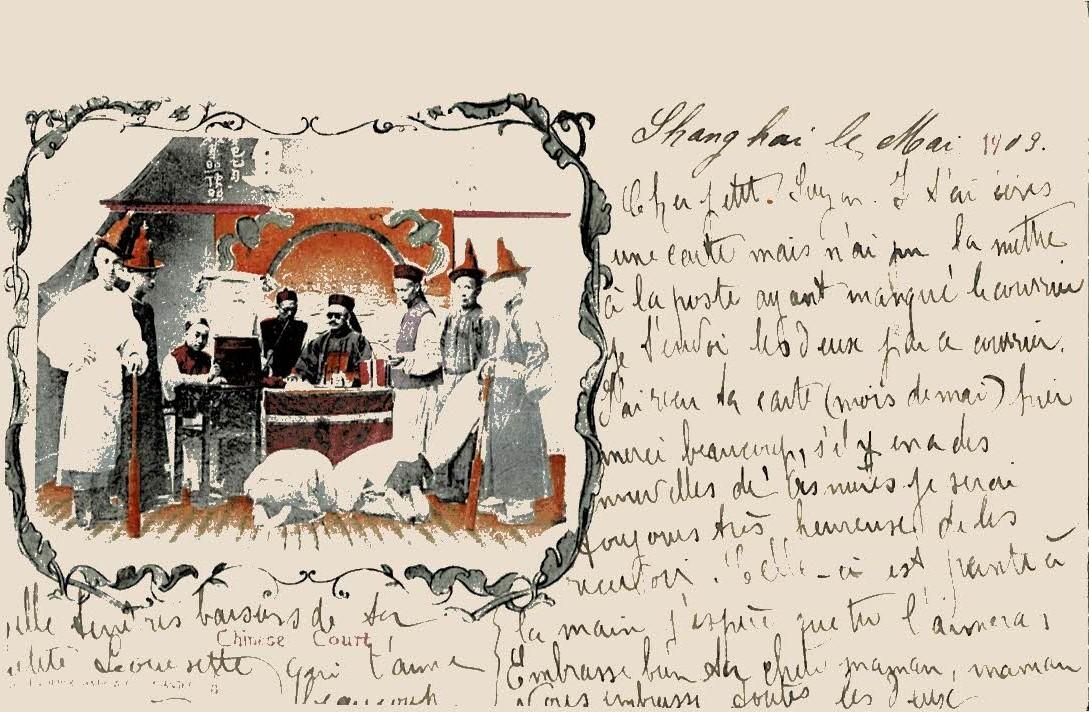 Shanghai le Mai 1903.
Cher petit Suzon. J t'ai écris
une carte mais n'ai pu la mettre
à la poste ayant manqué le courrier
je t'envoi les deux par ce courrier.
J'ai recu ta carte (mois de mai) hier
merci beaucoup, s'il y en a des
nouvelles de les je serai
toujours très heureuse de les
recevoir. Celle-ci est peinte à
la main j'espère que tu l'aimeras
Embrasse bien ta chère maman, maman
vous embrasse toutes les deux
mille tendres baisers de ta
petite Louisette qui t'aime
beaucoup.
Chinese Court